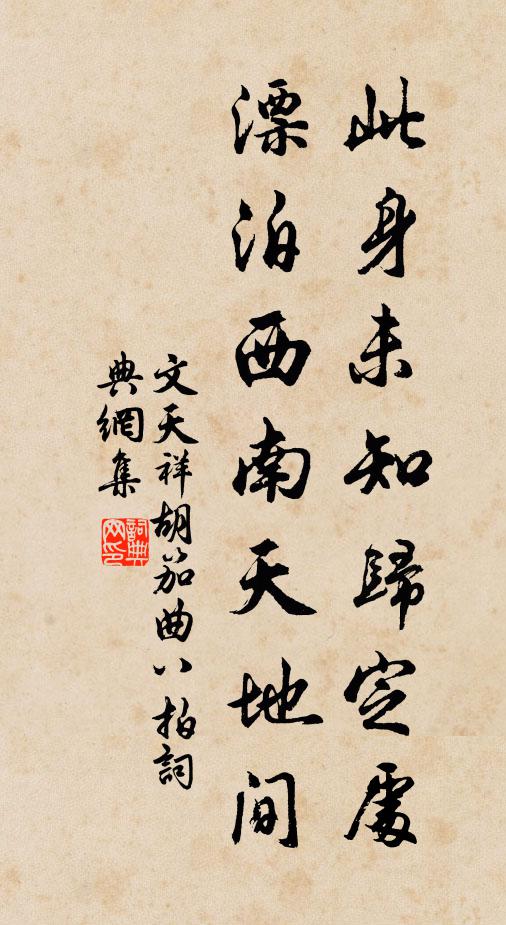 此身未知歸定處
漂泊西南天地間
文天祥胡笳曲八拍詞
典網集
詞典網印